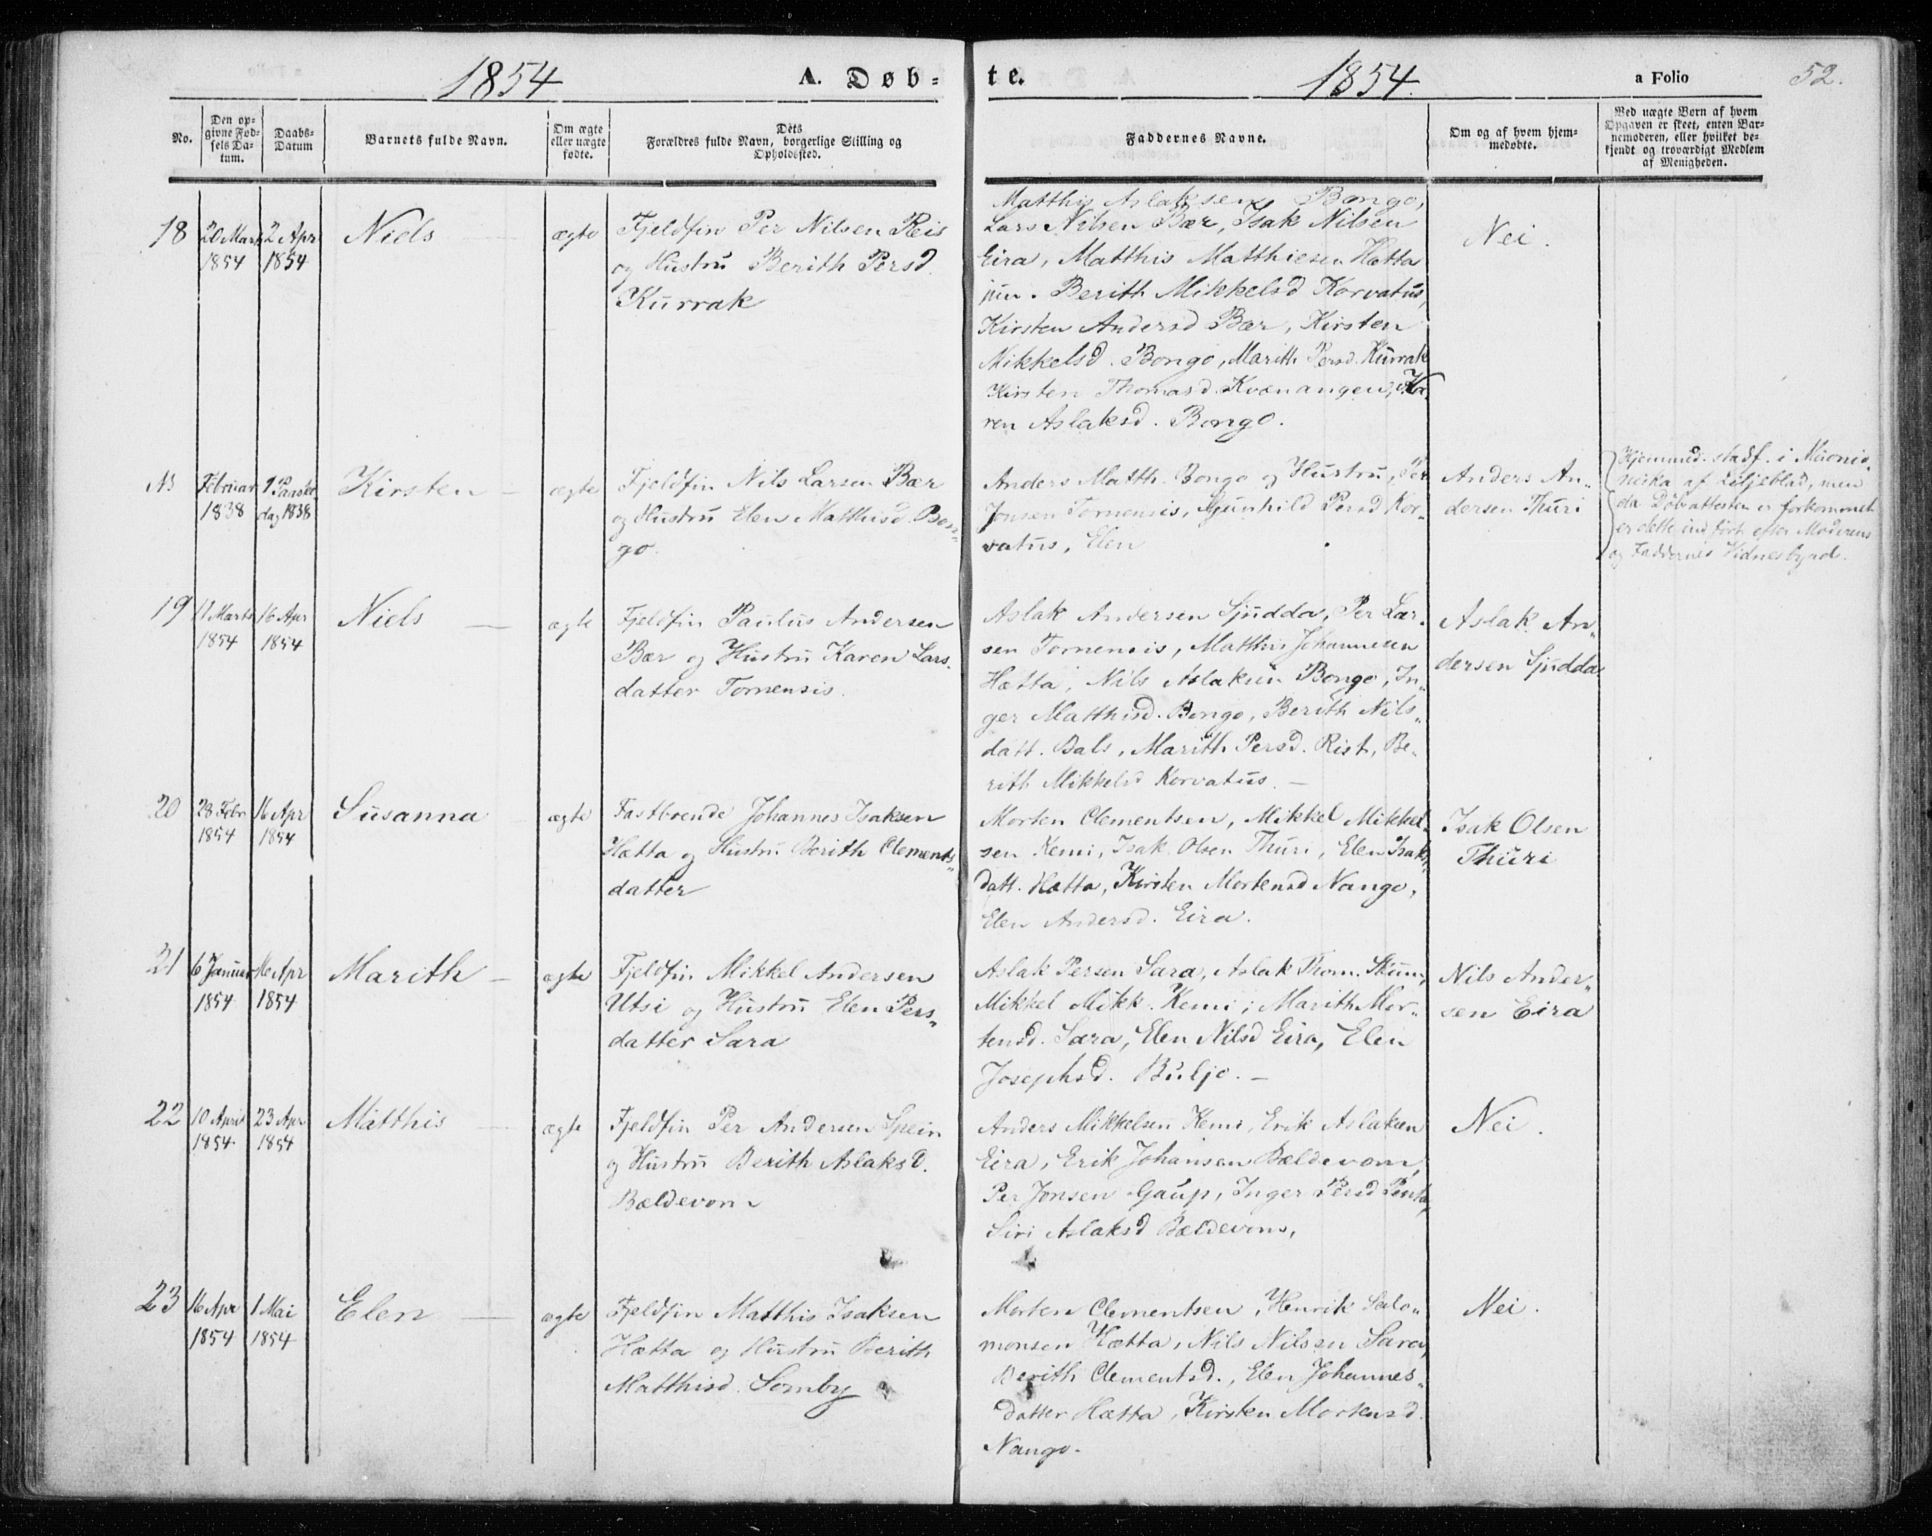 1854 A. Døb-
te. 1854. a Folio 52.
No.
Den op-
givne Fød-
sels Da-
tum.
Daabs-
Datum
Barnets fulde Navn.
Om ægte
eller uægte
fødte.
Dets
Forældres fulde Navn, borgerlige Stilling og
Opholdssted.
Faddernes Navne.
Om og af hvem hjem-
medøbte.
Ved uægte Børn af hvem
Opgaven er skeet, enten Bar-
nemoderen, eller hvilket be-
kjendt og troværdigt Medlem
af Menigheden.
18
20 Marts
1854
2 Apr
1854
Niels
ægte
Fjeldfin Per Nilsen Reis
og Hustru Berith Persd.
Kurrak
Matthis Aslaksen Bongo,
Lars Nilsen Bær, Isak Nilsen
Eira, Matthis Matthiesen Hætta
jun. Berith Mikkelsd Korvatus,
Kirsten Andersd Bær, Kirsten
Mikkelsd. Bongo, Marith Persd. Kurrak
Kirsten Thomasd. Kvænangen, Ka,
ren Aslaksd. Bongo.
Nei.
Februar
1838
1 Paaske
dag 1838
Kirsten
ægte
Fjeldfin Nils Larsen Bær
og Hustru Elen Matthisd. Bon-
go.
Anders Matth. Bongo og Hustru, Per
Jonsen Tornensis, Gunhild Persd Kor-
vatus, Elen
Anders An-
dersen Thuri
Hjemmed. stadf. i Muonio-
niska af Liljeblad, men
da Døbsattesten er forkommet
er dette indført efter Moderens
og Faddernes Vidnesbyrd.
19
11 Marts
1854
16 Apr
1854
Niels
ægte
Fjeldfin Paulus Andersen
Bær og Hustru Karen Lars-
datter Tornensis.
Aslak Andersen Sjudda, Per Lar-
sen Tornensis, Matthis Johannesen
Hætta, Nils Aslaksen Bongo, In-
ger Matthisd. Bongo, Berith Nils-
datt. Bals, Marith Persd. Rist, Be-
rith Mikkelsd Korvatus.
Aslak An-
dersen Sjudda
20
28 Febr
1854
16 Apr
1854
Susanna
ægte
Fastboende Johannes Isaksen
Hætta og Hustru Berith Clements-
datter
Morten Clementsen, Mikkel Mikkel-
sen Kemi, Isak Olsen Thuri, Elen Isaks-
datt. Hætta, Kirsten Mortensd Nango,
Elen Andersd. Eira.
Isak Olsen
Thuri
21
6 Januar
1854
16 Apr
1854
Marith
ægte
Fjeldfin Mikkel Andersen
Utsi og Hustru Elen Pers-
datter Sara
Aslak Persen Sara, Aslak Thom. Skum,
Mikkel Mikk. Kemi, Marith Mor-
tensd. Sara, Elen Nilsd Eira, Elen
Josephsd. Buljo.
Nils Ander-
sen Eira
22
10 April
1854
23 Apr
1854
Matthis
ægte
Fjeldfin Per Andersen Spein
og Hustru Berith Aslaksd.
Bældevom
Anders Mikkelsen Kemi, Erik Aslaksen
Eira, Erik Johansen Bældevom,
Per Jonsen Gaup, Inger Persd Penta,
Siri Aslaksd Bældevom,
Nei.
23
16 Apr
1854
1 Mai
1854
Elen
ægte
Fjeldfin Matthis Isaksen
Hætta og Hustru Berith
Matthisd. Somby
Morten Clementsen, Henrik Salo-
monsen Hætta, Nils Nilsen Sara,
Berith Clementsd., Elen Johannes-
datter Hætta, Kirsten Mortensd.
Nango.
Nei.